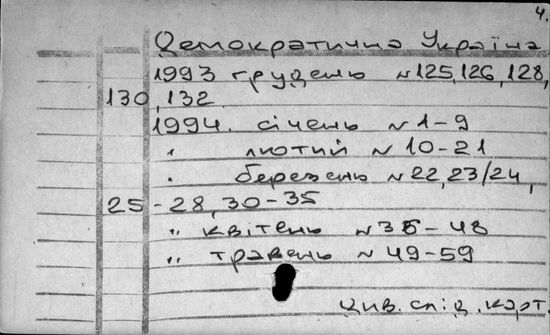 4.
Демократична Україна
1993 грудень №125,126,128,
130,132
1994. січень №1-9
" лютий №10-21
" березень №22,23/24,
25-28,30-35
" квітень №36-48
" травень №49-59
див. слід. карт.